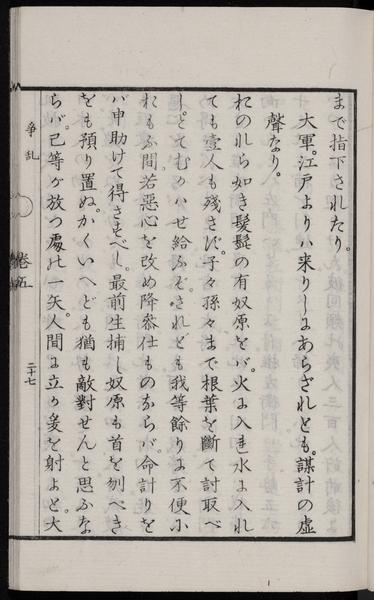 まで指下されたり。
大軍。江戸よりハ来りしにあらざれとも。謀計の虚
聲なり。
れのれら如き髮髭の有奴原をバ。火に入連水に入れ
ても壹人も残さず。子々孫々まで根葉を斷て討取べ
し。とてむかハせ給ふぞ。されども我等餘りに不便に
れもふ間。若惡心を改め降叅仕ものならバ。命計りを
バ申助けて得させべし。最前生捕し奴原も首を刎べき
をも預り置ぬ。かくいへども猶も敵對せんと思ふな
らバ。己等が放つ處の一矢。人間に立つか爰を射よと。大
爭乱
卷五
二十七